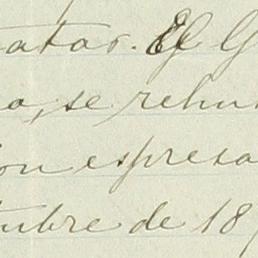 atar. El G
o, se rehu
on espresa
tubre de 18